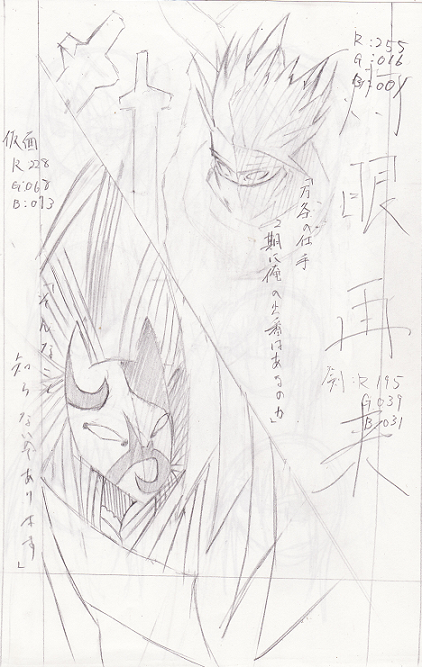 R:255
G:016
灼眼再来
剣:R 195
G 039
B 031
「万条の仕手
2期に俺の出番はあるのか」
仮面
R 228
G:068
B:073
「そんなこと
知らないであります」